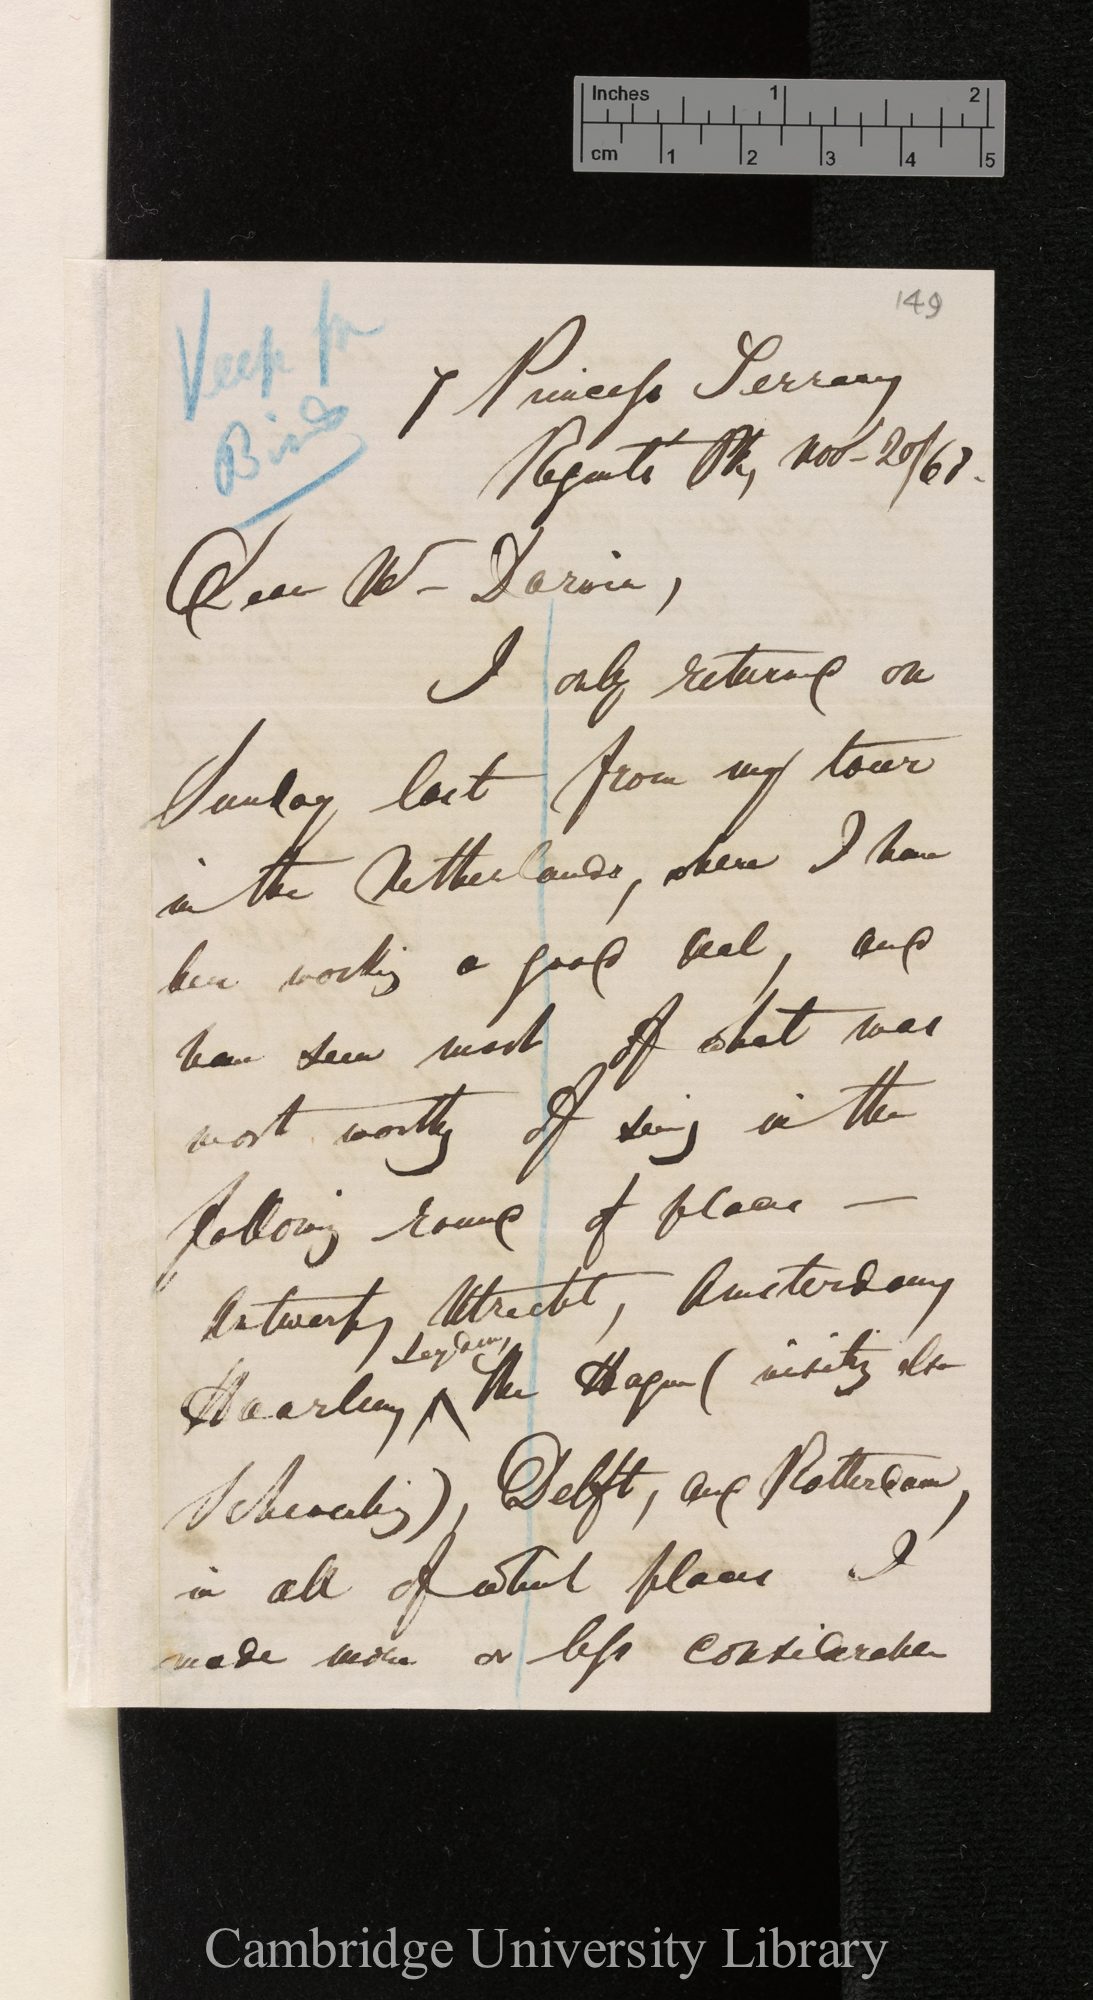 Inches 1 2
cm 1 2 3 4 5
149
Keep for
Birds
7 Princess Terrace,
Regents' Pk, Nov- 20/68.
Dear Mr- Darwin,
I only returned on
Sunday last from my tour
in the Netherlands, where I have
been working a good deal, and
have seen most of what was
most worthy of seeing in the
following round of places —
Antwerp, Utrecht, Amsterdam,
Leyden,
Haarlem, ^ The Hague (visiting also
Scheveling), Delft, and Rotterdam,
in all of which places I
made more or less considerable
Cambridge University Library